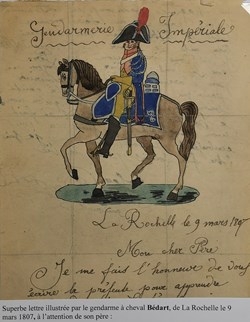 Gendarmerie Impériale
La Rochelle le 9 mars 1807
Mon cher Père
Je me fais l'honneur de vous
écrire la présente pour apprendre
Superbe lettre illustrée par le gendarme à cheval Bédart, de La Rochelle le 9
mars 1807, à l'attention de son père :